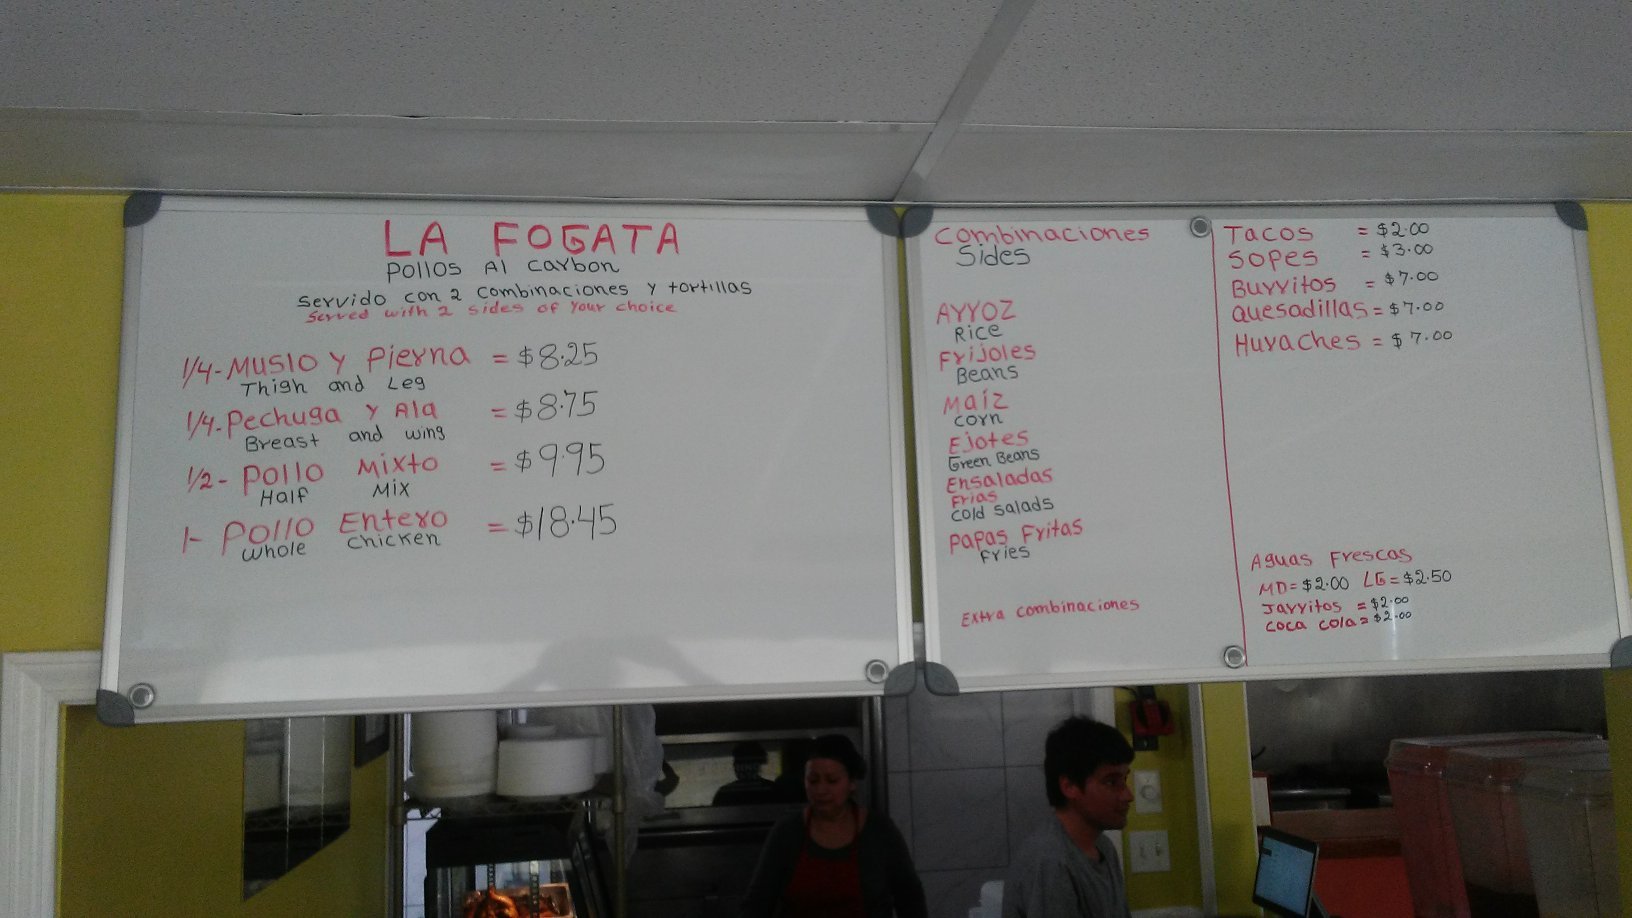 LA FOGATA
Pollos Al Carbon
Servido con 2 combinaciones y tortillas
Served with 2 sides of your choice
1/4-Muslo y Pierna = $8.25
Thigh and Leg
1/4-Pechuga y Ala = $8.75
Breast and wing
1/2- Pollo Mixto = $9.95
Half Mix
1- Pollo Entero = $18.45
Whole Chicken
Combinaciones
Sides
Arroz
Rice
Frijoles
Beans
Maíz
Corn
Ejotes
Green Beans
Ensaladas
Frias
Cold Salads
Papas Fritas
Fries
Extra combinaciones
Tacos = $2.00
Sopes = $3.00
Burritos = $7.00
Quesadillas = $7.00
Huraches = $7.00
Aguas Frescas
MD=$2.00 LG=$2.50
Jarritos = $2.00
Coca Cola = $2.00